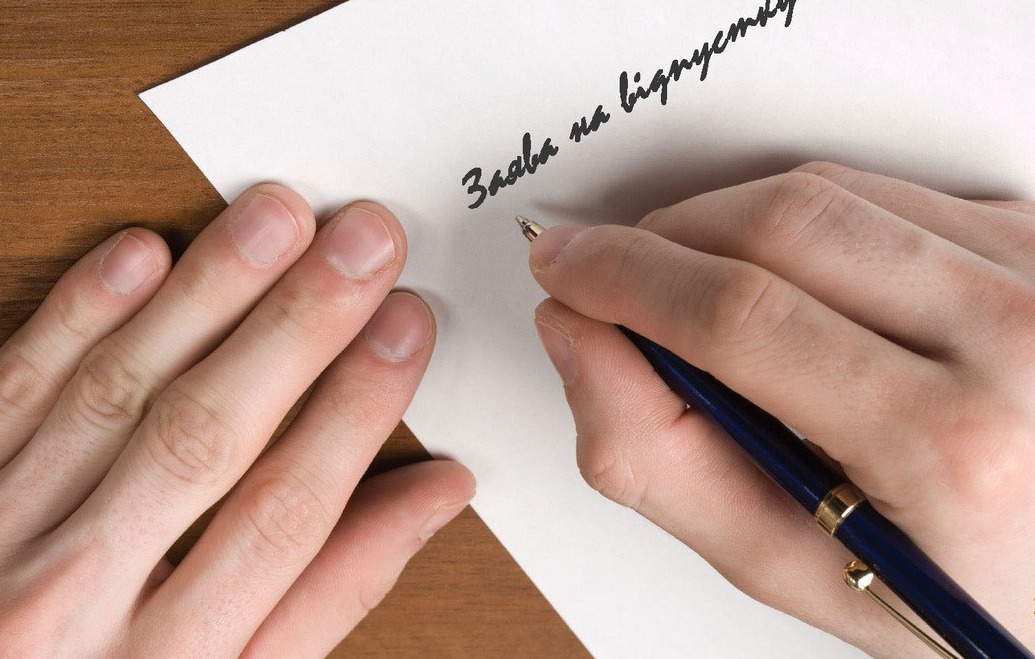 Заява на відпустку